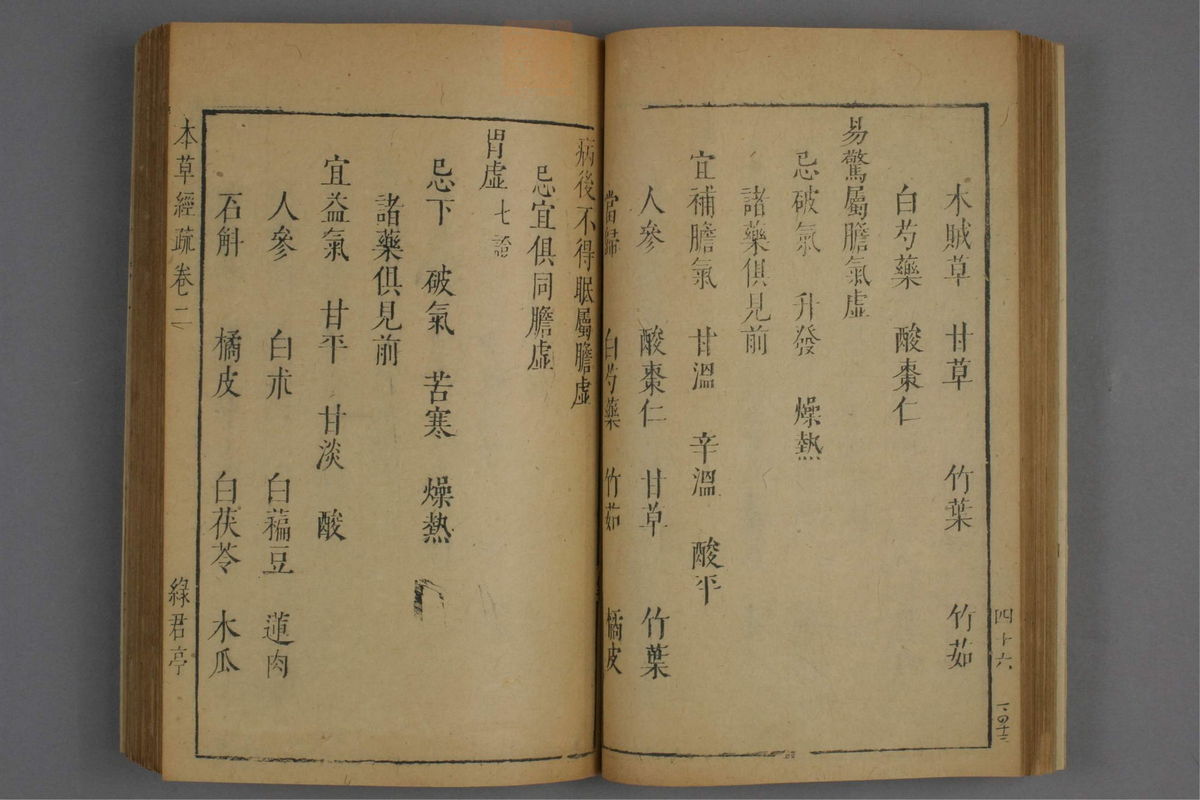 木賊草 甘草 竹葉 竹茹
白芍藥 酸棗仁
易驚屬膽氣虛
忌破氣 升發 燥熱
諸藥俱見前
宜補膽氣 甘溫 辛溫 酸平
人參 酸棗仁 甘草 竹葉
當歸 白芍藥 竹茹 橘皮
四十六
病後不得眠屬膽虛
忌宜俱同膽虛
胃虛 七證
忌下 破氣 苦寒 燥熱
諸藥俱見前
宜益氣 甘平 甘淡 酸
人參 白朮 白藊豆 蓮肉
石斛 橘皮 白茯苓 木瓜
本草經疏卷二 綠君亭